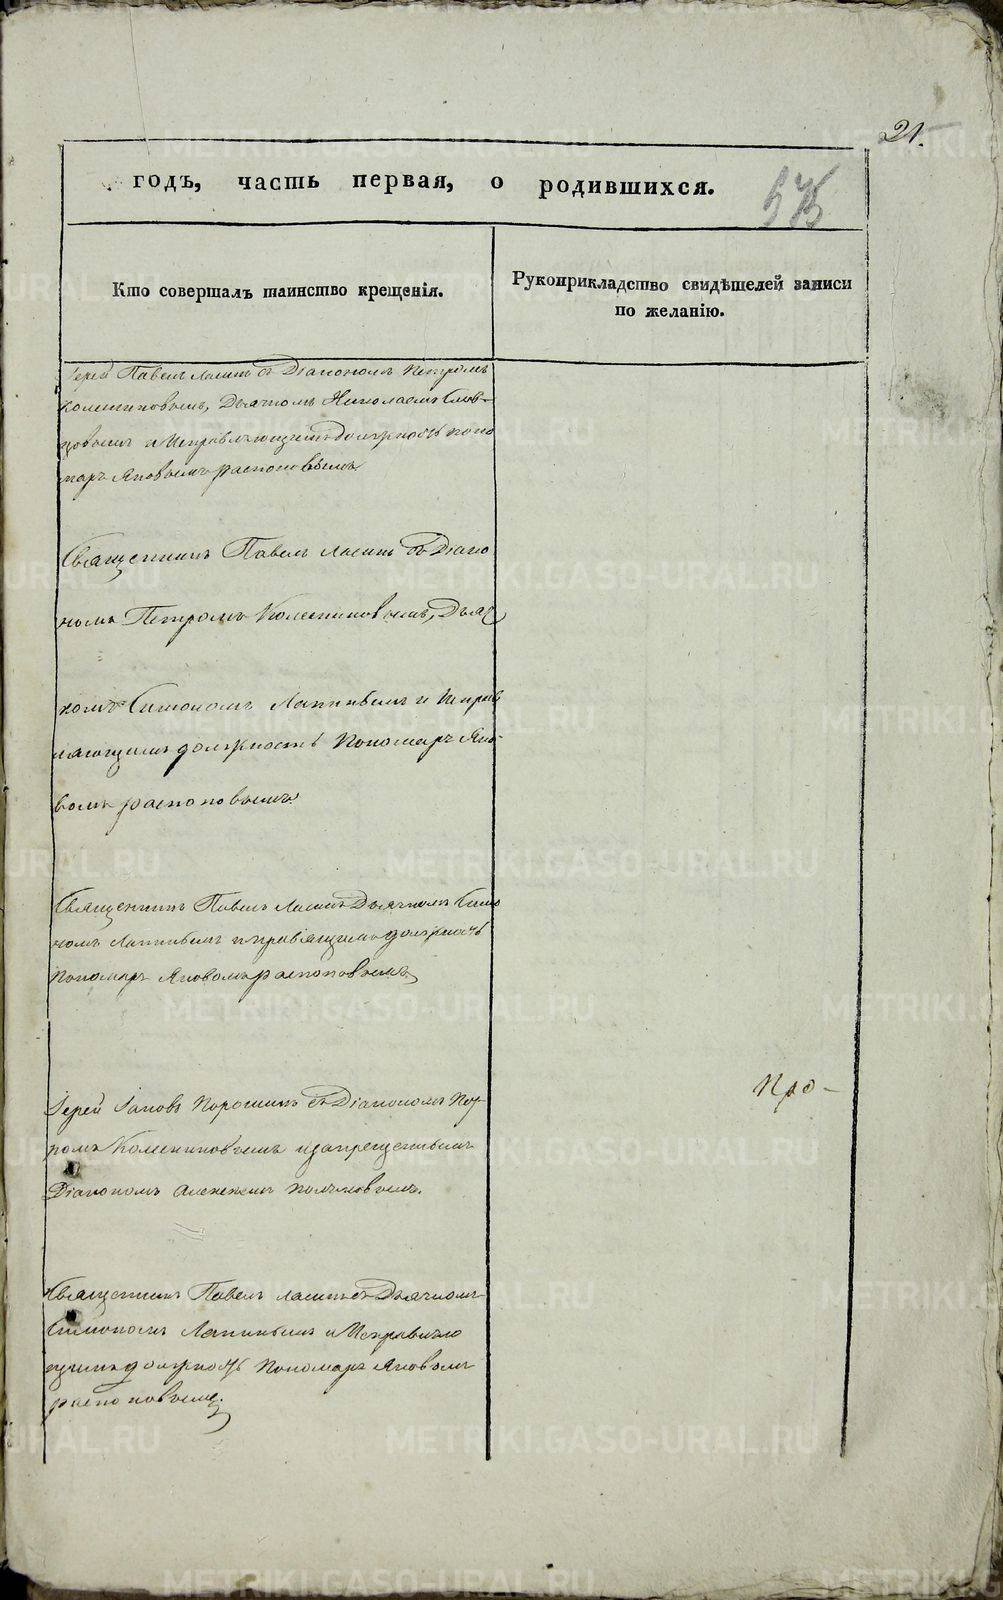 21.
годъ, часть первая, о родившихся.
575
Кто совершалъ таинство крещенія.
Рукоприкладство свидѣтелей записи
по желанію.
Іерей Павелъ съ Діакономъ Петромъ
Колесниковымъ, Дьячкомъ Николаемъ Слов-
цовымъ и Исправляющимъ должность поно
маря Яковомъ распоповымъ
Священникъ Павелъ съ Діако
номъ Петромъ Колесниковымъ, Дьяч
комъ Симономъ Лапинымъ и Исправ
ляющимъ должность Пономаря Яко-
вомъ распоповымъ
Священникъ Павелъ Дьячкомъ Симо
номъ Лапинымъ должность
Пономаря Яковомъ распоповымъ
Іерей Іаковъ Порошинъ съ Діакономъ Пет-
ромъ Колесниковымъ и запрещеннымъ
Діакономъ Алексеемъ
Про-
Священникъ Павелъ съ Дьячкомъ
Симономъ Лапинымъ и Исправляю
щимъ должность Пономаря Яковомъ
распоповымъ.
METRIKI.GASO-URAL.RU